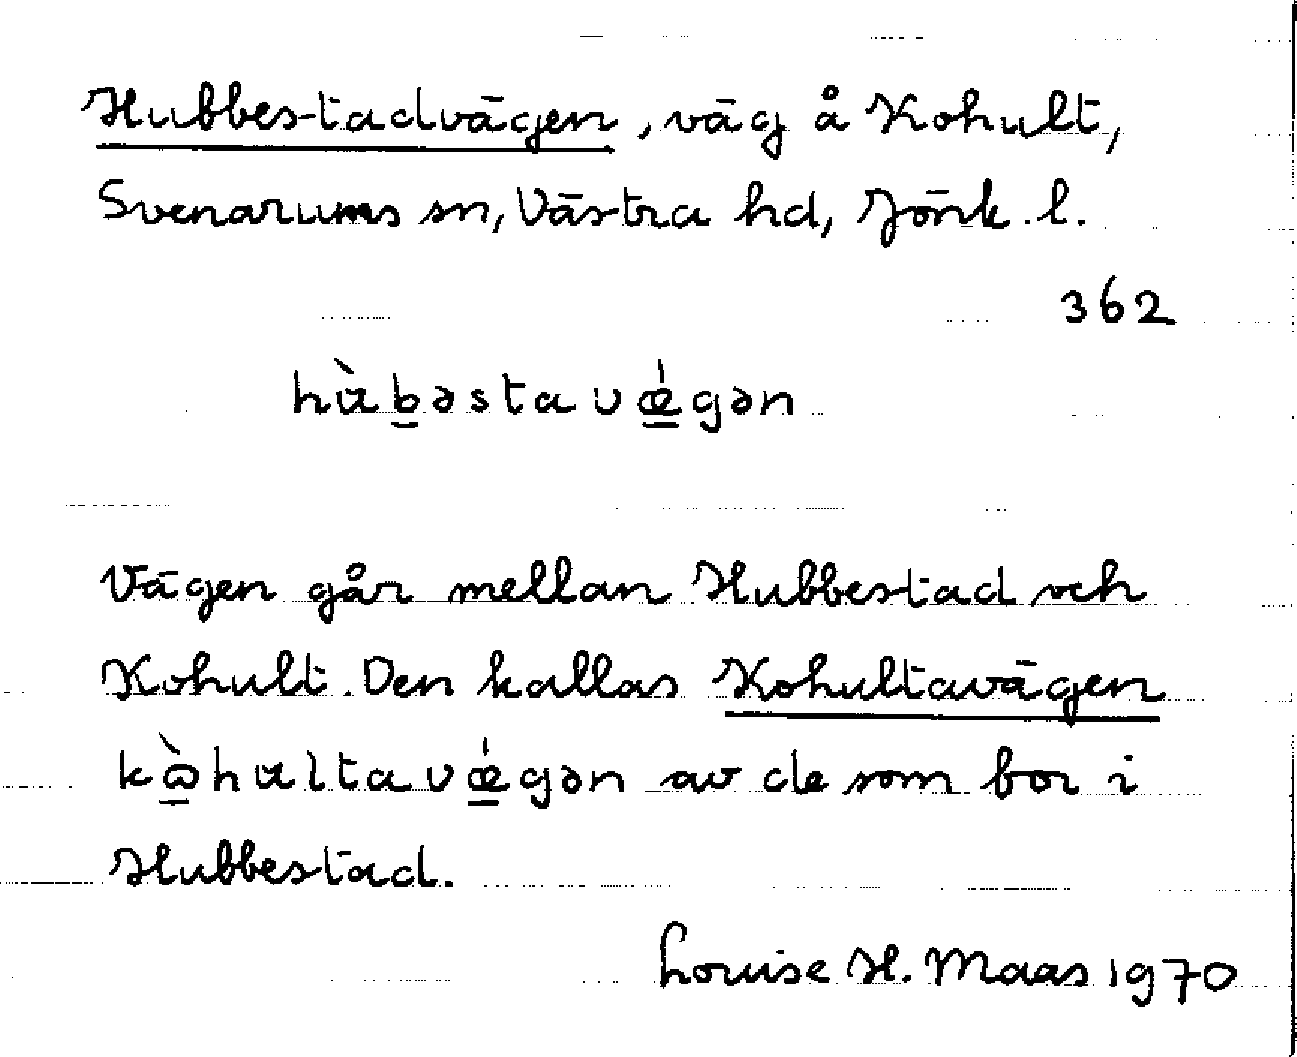 Hubbestadvägen, väg å Kohult,
Svenarums sn, Västra hd, Jönk. l.
362
hɑ̀b̲əstavǽ̲gən
Vägen går mellan Hubbestad och
Kohult. Den kallas Kohultavägen
kɷ̲̀hɑltavǽ̲gən av de som bor i
Hubbestad.
Louise H. Maas 1970